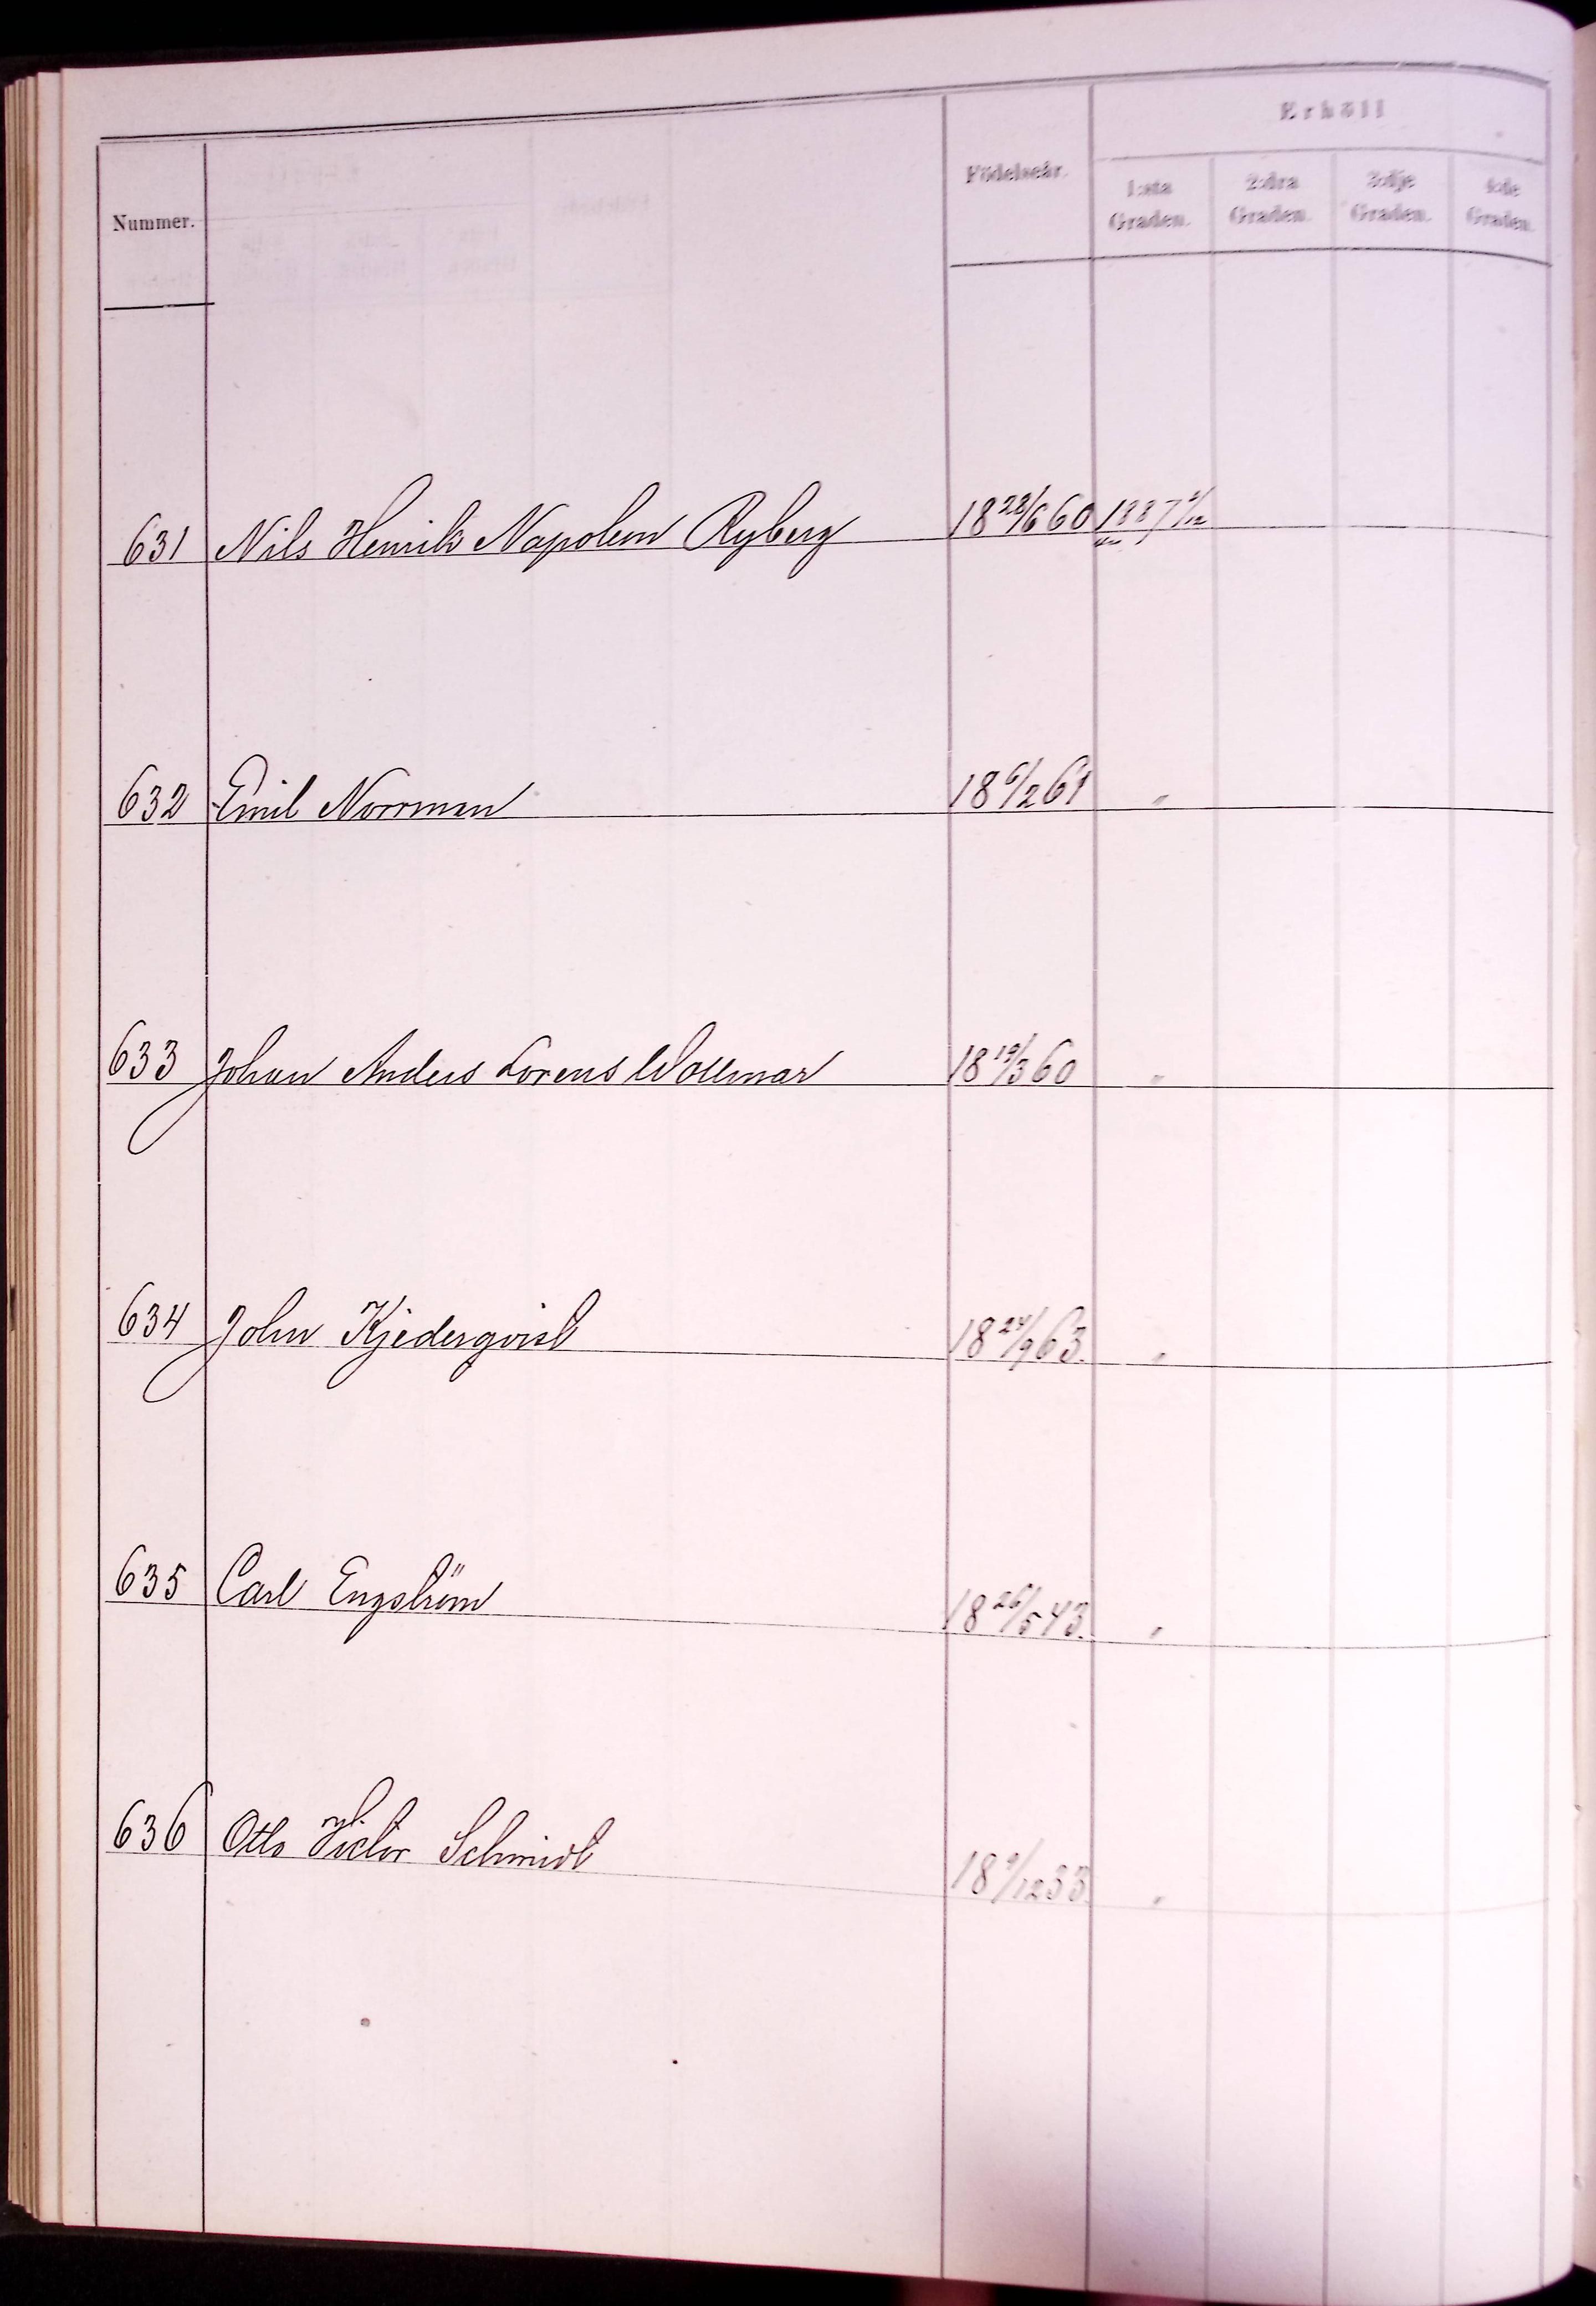 Erhöll
Nummer. Födelseår. 1:sta Graden. 2:dra Graden. 3:dje Graden. 4:de Graden.
631 Nils Henrik Napoleon Ryberg 18 28/6 60 1887 2/12
632 Emil Norrman 18 6/2 61 "
633 Johan Anders Lorens Wollmar 18 19/3 60 "
634 John Kjederqvist 18 24/9 63. "
635 Carl Engström 18 26/5 43. "
636 Otto Victor Schmidt 18 9/12 33. "